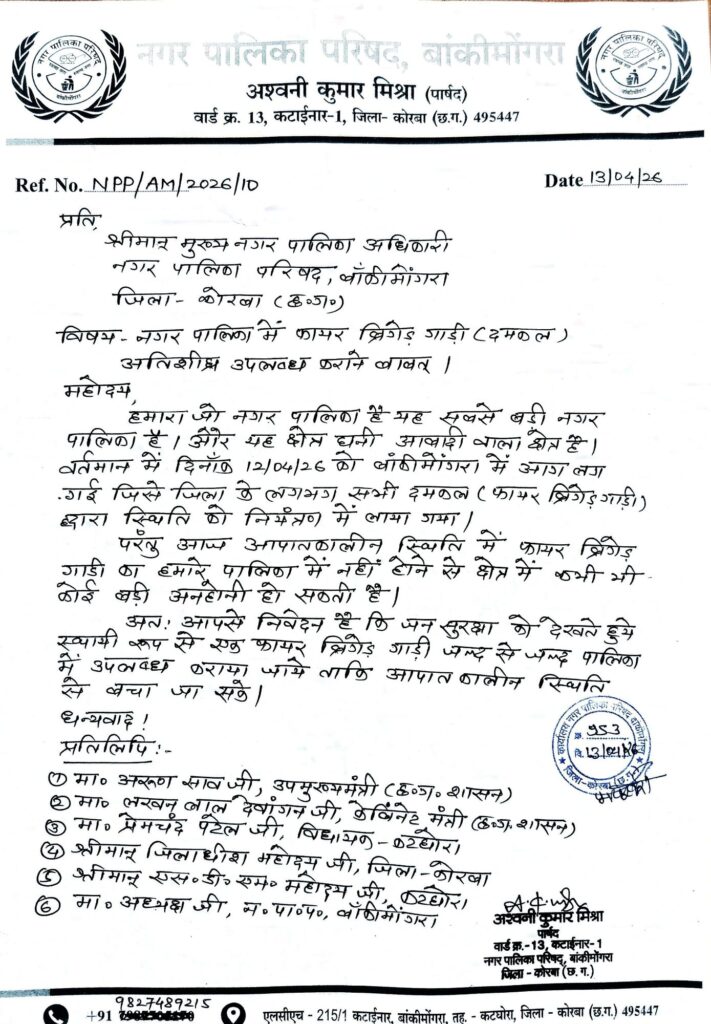 नगर पालिका परिषद, बांकीमोंगरा
अश्वनी कुमार मिश्रा (पार्षद)
वार्ड क्र. 13, कटाईनार-1, जिला- कोरबा (छ.ग.) 495447
Ref. No. NPP/AM/2026/10
Date 13/04/26
प्रति,
श्रीमान् मुख्य नगर पालिका अधिकारी
नगर पालिका परिषद, बाँकीमोंगरा
जिला - कोरबा (छ०ग०)
विषय - नगर पालिका में फायर ब्रिगेड़ गाड़ी (दमकल)
अतिशीघ्र उपलब्ध कराने बाबत् ।
महोदय,
हमारा जो नगर पालिका है यह सबसे बड़ी नगर
पालिका है । और यह क्षेत्र घनी आबादी वाला क्षेत्र है ।
वर्तमान में दिनाँक 12/04/26 को बांकीमोंगरा में आग लग
गई जिसे जिला के लगभग सभी दमकल (फायर ब्रिगेड़ गाड़ी)
द्वारा स्थिति को नियंत्रण में लाया गया ।
परंतु आज आपातकालीन स्थिति में फायर ब्रिगेड़
गाड़ी का हमारे पालिका में नहीं होने से क्षेत्र में कभी भी
कोई बड़ी अनहोनी हो सकती है ।
अतः आपसे निवेदन है कि जन सुरक्षा को देखते हुये
स्थायी रूप से एक फायर ब्रिगेड़ गाड़ी जल्द से जल्द पालिका
में उपलब्ध कराया जाये ताकि आपातकालीन स्थिति
से बचा जा सके ।
धन्यवाद !
प्रतिलिपि :-
कार्यालय नगर पालिका परिषद बांकीमोंगरा
क्र. 953
दि. 13/04/26
जिला-कोरबा (छ.ग.)
① मा० अरूण साव जी, उपमुख्यमंत्री (छ.ग. शासन)
② मा० लखन लाल देवांगन जी, केबिनेट मंत्री (छ.ग. शासन)
③ मा० प्रेमचंद पटेल जी, विधायक - कटघोरा
④ श्रीमान् जिलाधीश महोदय जी, जिला - कोरबा
⑤ श्रीमान् एस० डी० एम० महोदय जी, कटघोरा
⑥ मा० अध्यक्ष जी, न० पा० प०, बाँकीमोंगरा
अश्वनी कुमार मिश्रा
पार्षद
वार्ड क्र.-13, कटाईनार-1
नगर पालिका परिषद्, बांकीमोंगरा
जिला - कोरबा (छ.ग.)
9827489215
+91
एलसीएच - 215/1 कटाईनार, बांकीमोंगरा, तह. - कटघोरा, जिला - कोरबा (छ.ग.) 495447